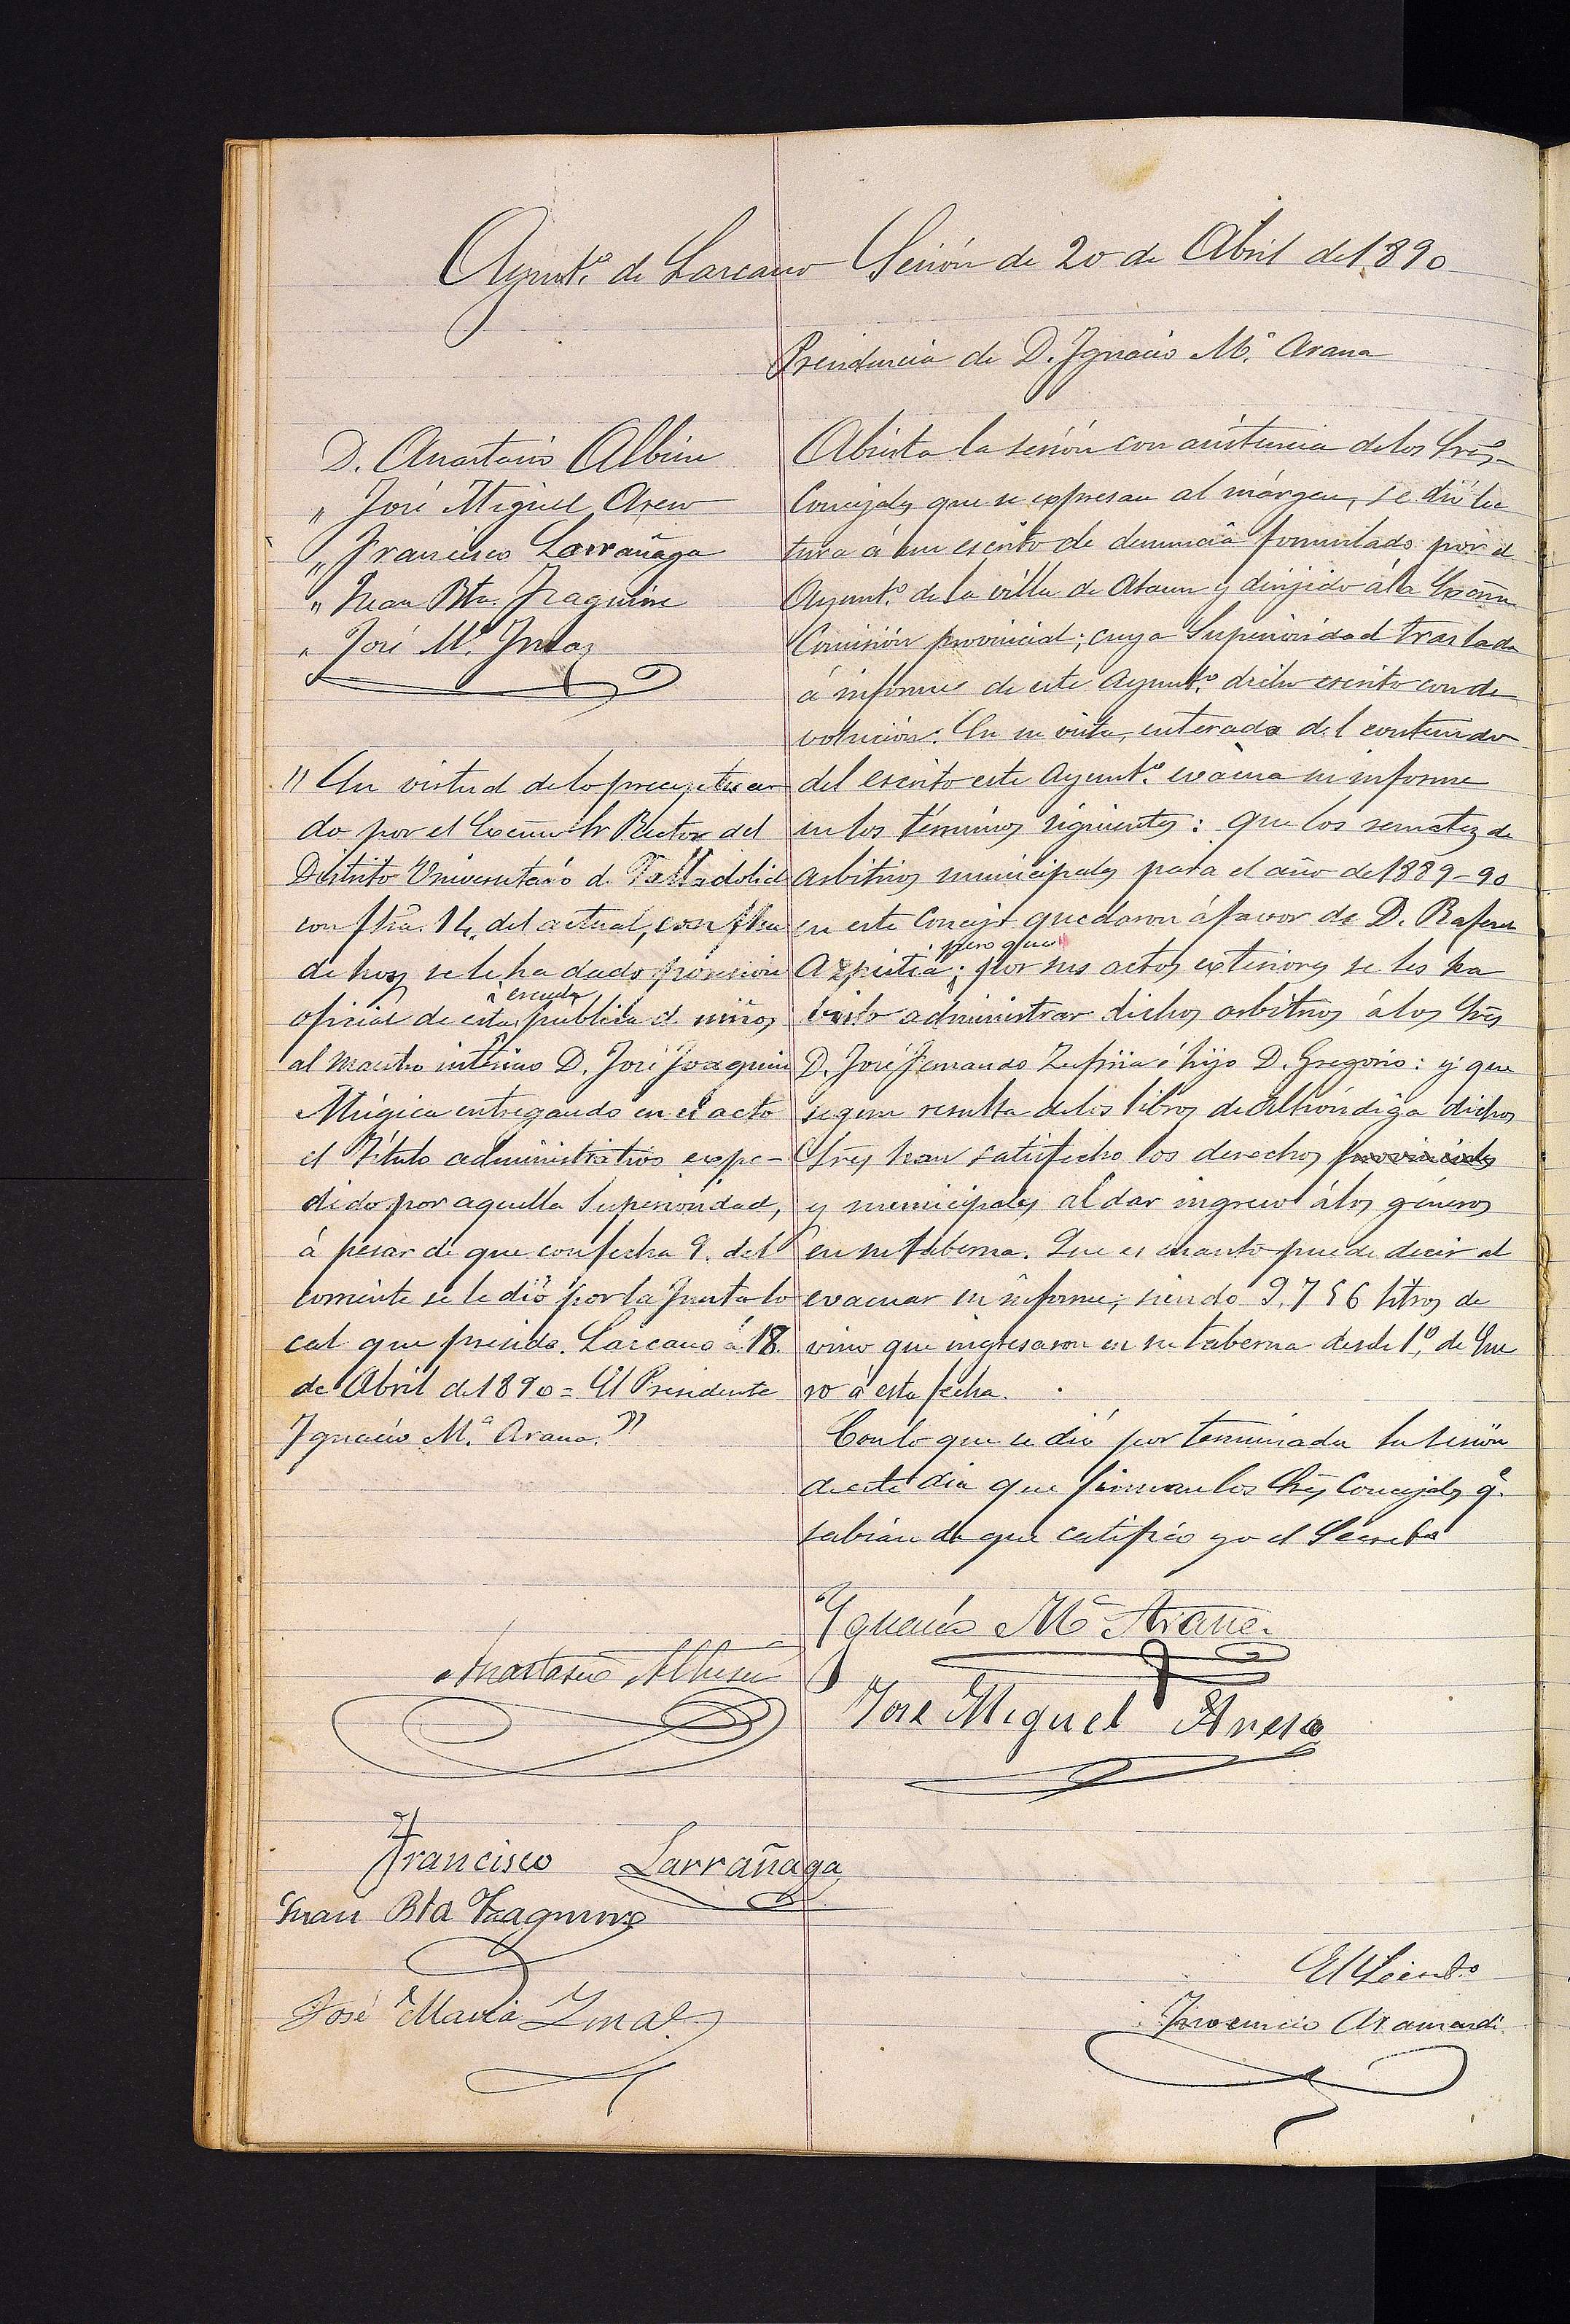 Ayunt.º de Lazcano Sesión de 20 de Abril de 1890
Presidencia de D. Ignacio M.ª Arana
D. Anastasio Albisu
„ José Miguel Areso
„ Francisco Larrañaga
„ Juan Bta. Izaguirre
„ José M.ª Imaz
" En virtud de lo preceptua
do por el Excmo Sr Rector del
Distrito Universitario de Valladolid
con fha. 14, del actual, con fha
de hoy se le ha dado posesión
oficial de esta escuela publica de niños
al maestro interino D. José Joaquin
Múgica entregando en el acto
el Titulo administrativo expe-
dido por aquella Superioridad,
á pesar de que con fecha 9. del
corriente se le dió por la Junta lo
cal que presido. Lazcano á 18.
de Abril de 1890 = El Presidente
Ignacio M.ª Arana."
Abierta la sesión con asistencia de los Sres
Concejales que se expresan al márgen, se dió lec
tura á un escrito de denuncia formulado por el
Ayunt.º de la villa de Ataun y dirijido á la Excma
Comisión provincial; cuya Superioridad traslada
á informe de este Ayunt.º dicho escrito con de
volución. En su vista, enterado del contenido
del escrito este Ayunt.º evácua su informe
en los términos siguientes: que los remates de
arbitrios municipales para el año de 1889-90
en este Concejo quedaron á favor de D. Rafael
Azpitia; pero que por sus actos exteriores se les ha
visto administrar dichos arbitrios á los Sres
D. José Fernando Zufiria é hijo D. Gregorio: y que
segun resulta de los libros de Alhóndiga dichos
Sres han satisfecho los derechos provinciales
y municipales al dar ingreso á los géneros
en su taberna. Que es cuanto puede decir al
evacuar su informe; siendo 9.756 litros de
vino que ingresaron en su taberna desde 1.º de Ene
ro á esta fecha.
Con lo que se dió por terminada la sesión
de este dia que firman los Sres Concejales q.e
sabian de que certifico yo el Secret.º
Ygnacio M.ª Arana.
Anastasio Albisu
Jose Miguel Areso
Francisco Larrañaga
Juan Bta Izaguirre
José Maria Ymaz
El Secret.º
Inocencio Aramendi